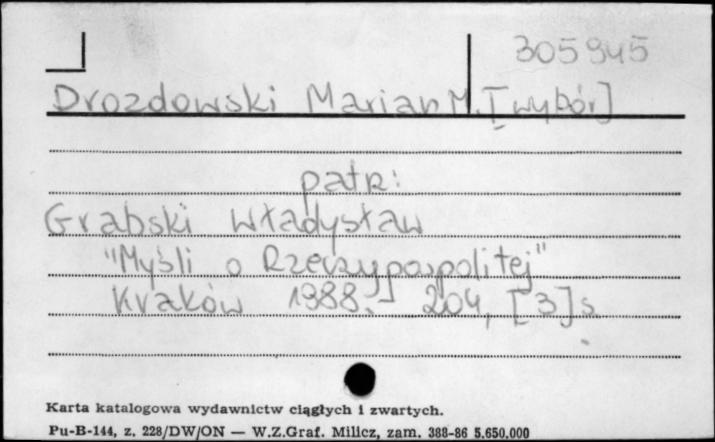 305945
Drozdowski Marian M. [wybór]
patrz:
Grabski Władysław
"Myśli o Rzeczypospolitej"
Kraków 1988. 204, [3] s.
Karta katalogowa wydawnictw ciągłych i zwartych.
Pu-B-144, z. 228/DW/ON — W.Z.Graf. Milicz, zam. 388-86 5.650.000